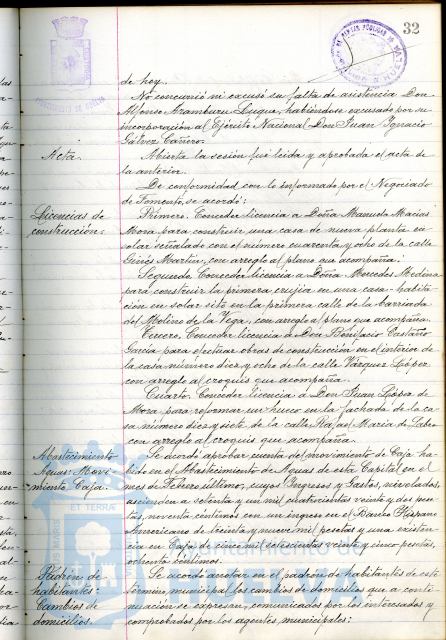 32
de hoy.
No concurrió ni excusó su falta de asistencia Don
Alfonso Aramburu Luque, habiéndose excusado por su
incorporación al Ejército Nacional Don Juan Ignacio
Gálvez Cañero.
Acta.
Abierta la sesión fué leida y aprobada el acta de
la anterior.
De conformidad con lo informado por el Negociado
de Fomento, se acordó:
Licencias de
construcción.
Primero. Conceder licencia a Doña Manuela Macias
Mora para construir una casa de nueva planta en
solar señalado con el número cuarenta y ocho de la calle
Ginés Martin, con arreglo al plano que acompaña.
Segundo. Conceder licencia a Doña Mercedes Medina
para construir la primera crujia en una casa-habita-
ción en solar sito en la primera calle de la barriada
del Molino de la Vega, con arreglo al plano que acompaña.
Tercero. Conceder licencia a Don Bonifacio Castaño
Garcia para efectuar obras de construcción en el interior de
la casa número diez y ocho de la calle Vázquez López
con arreglo al croquis que acompaña.
Cuarto. Conceder licencia a Don Juan López de
Mora para reformar un hueco en la fachada de la ca-
sa número diez y siete de la calle Rafael Maria de Labra
con arreglo al croquis que acompaña.
Abastecimiento
Aguas: Movi-
miento Caja.
Se acordó aprobar cuenta del movimiento de Caja ha-
bido en el Abastecimiento de Aguas de esta Capital en el
mes de Febrero último, cuyos Ingresos y Gastos, nivelados,
ascienden a setenta y un mil cuatrocientas veinte y dos pese-
tas, noventa céntimos con un ingreso en el Banco Hispano
Americano de treinta y nueve mil pesetas y una existen-
cia en Caja de cinco mil seiscientas veinte y cinco pesetas,
ochenta céntimos.
Padrón de
habitantes:
Cambios de
domicilios.
Se acordó anotar en el padrón de habitantes de este
término municipal los cambios de domicilios que a conti-
nuación se expresan, comunicados por los interesados y
comprobados por los agentes municipales:
ET TERRA